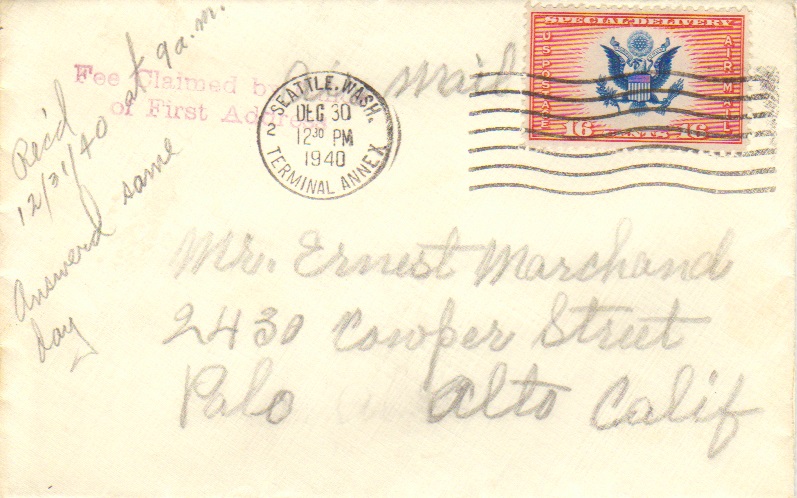 SPECIAL DELIVERY
U.S. POSTAGE
AIR MAIL
16 CENTS 16
Mail
Fee Claimed
of First
SEATTLE, WASH.
DEC 30
12 30 PM
1940
2
TERMINAL ANNEX
Rec'd
12/31/40 at 9 a.m.
Answerd same
day
Mr. Ernest Marchand
2430 Cowper Street
Palo Alto Calif